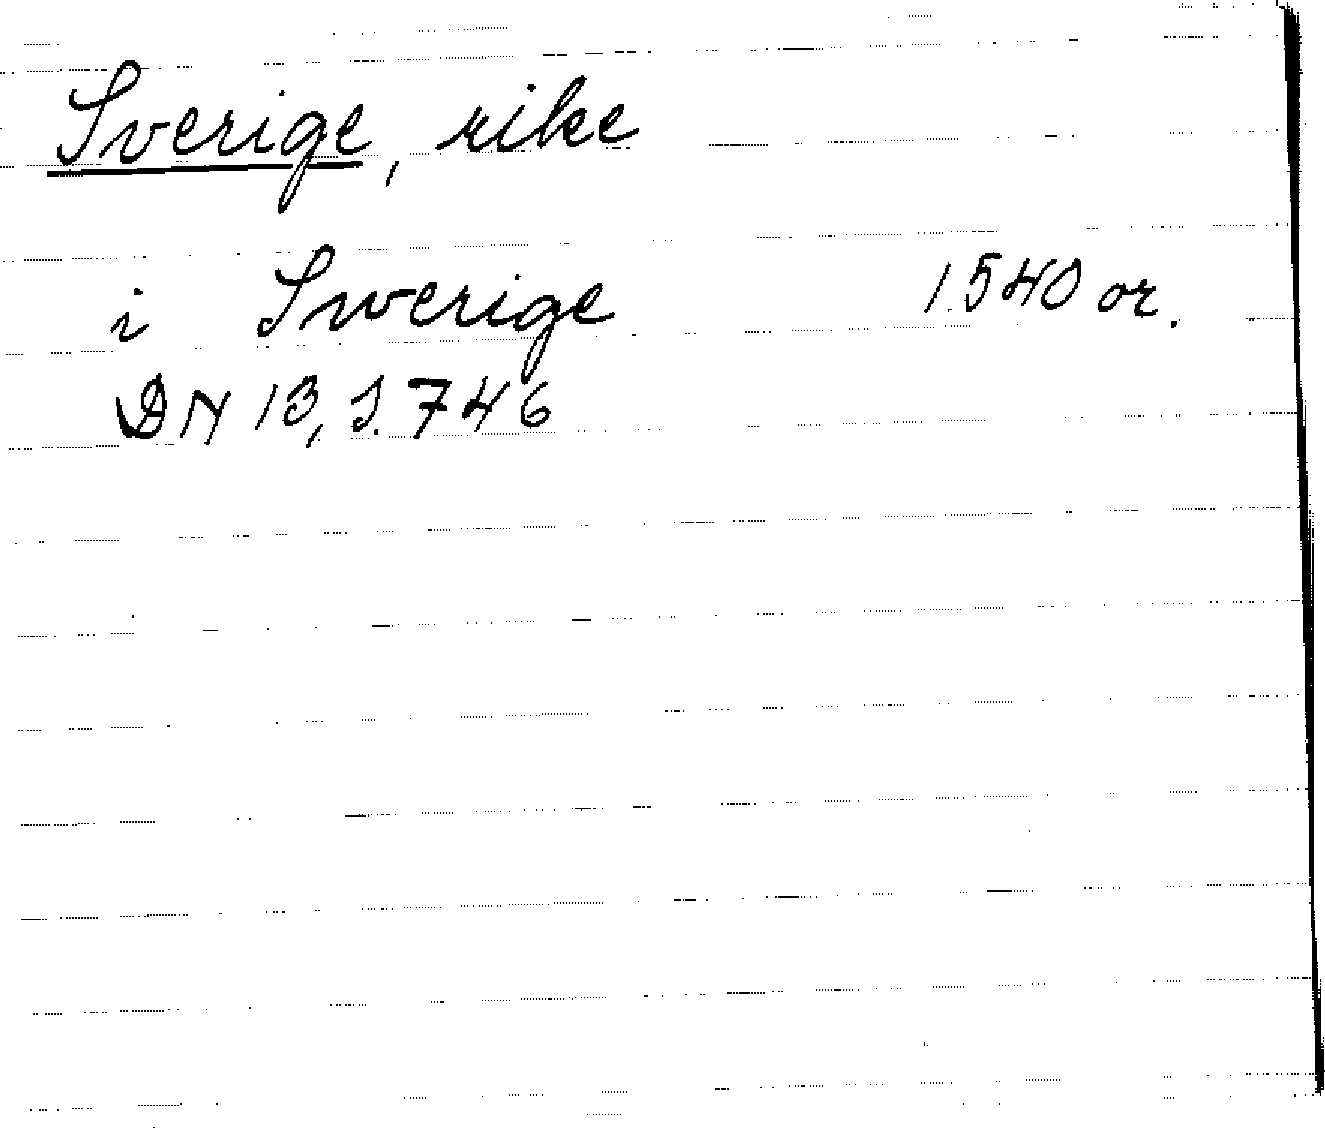 Sverige, rike
i Swerige 1540 or.
DN 13, s. 746